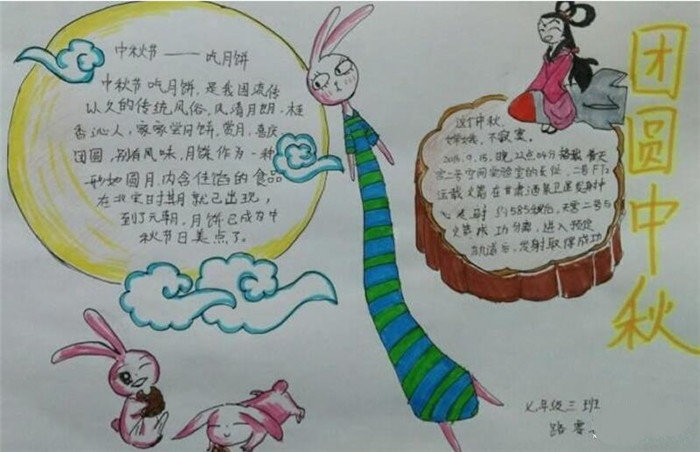 中秋节——吃月饼
中秋节吃月饼，是我国流传
以久的传统风俗，风清月朗，桂
香沁人，家家尝月饼，赏月，喜庆
团圆，别有风味，月饼作为一种
形如圆月，内含佳馅的食品
在北宋时期就已出现，
到了元朝，月饼已成为中
秋节日美点了。
这个中秋
嫦娥，不寂寞。
2016.9.15.晚，22点04分搭载着天
宫二号空间实验室的长征二号FT2
运载火箭在甘肃酒泉卫星发射中
心发射 约585秒后，天宫二号与
火箭成功分离，进入预定
轨道后，发射取得成功
团圆中秋
七年级三班